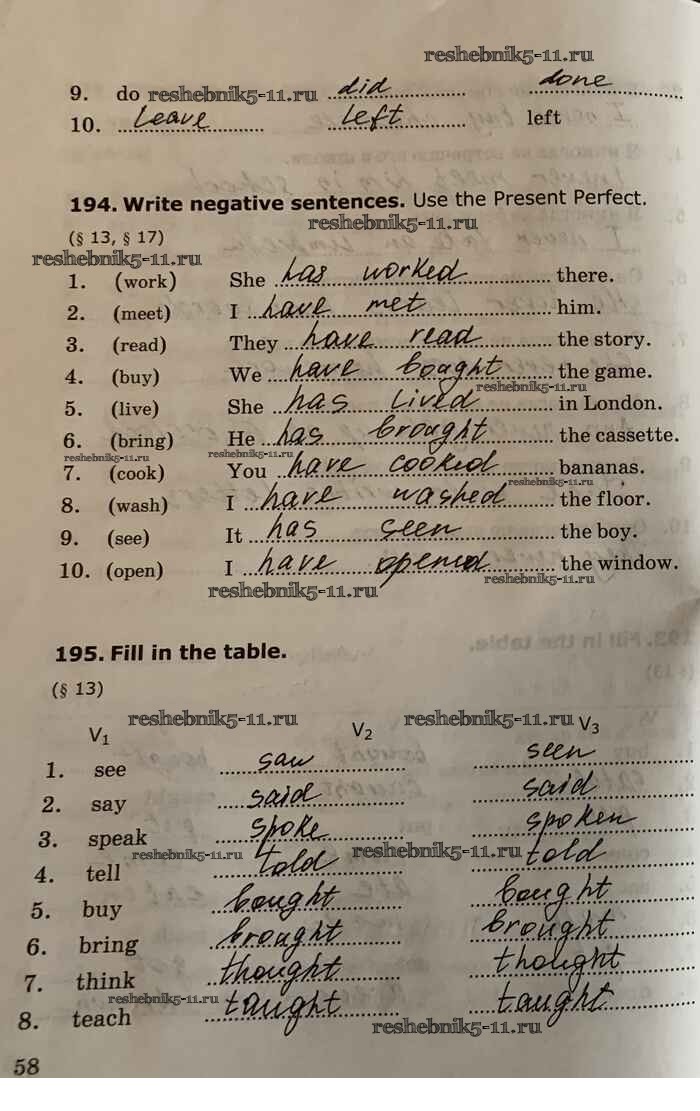 reshebnik5-11.ru
9. do reshebnik5-11.ru did done
10. leave left left
194. Write negative sentences. Use the Present Perfect.
reshebnik5-11.ru
(§ 13, § 17)
reshebnik5-11.ru
1. (work) She has worked there.
2. (meet) I have met him.
3. (read) They have read the story.
4. (buy) We have bought the game.
reshebnik5-11.ru
5. (live) She has lived in London.
6. (bring) He has brought the cassette.
reshebnik5-11.ru reshebnik5-11.ru
7. (cook) You have cooked bananas.
reshebnik5-11.ru
8. (wash) I have washed the floor.
9. (see) It has seen the boy.
10. (open) I have opened the window.
reshebnik5-11.ru reshebnik5-11.ru
195. Fill in the table.
(§ 13)
reshebnik5-11.ru reshebnik5-11.ru
V₁ V₂ V₃
1. see saw seen
2. say said said
3. speak spoke spoken
reshebnik5-11.ru reshebnik5-11.ru
4. tell told told
5. buy bought bought
6. bring brought brought
7. think thought thought
reshebnik5-11.ru
8. teach taught taught
reshebnik5-11.ru
58